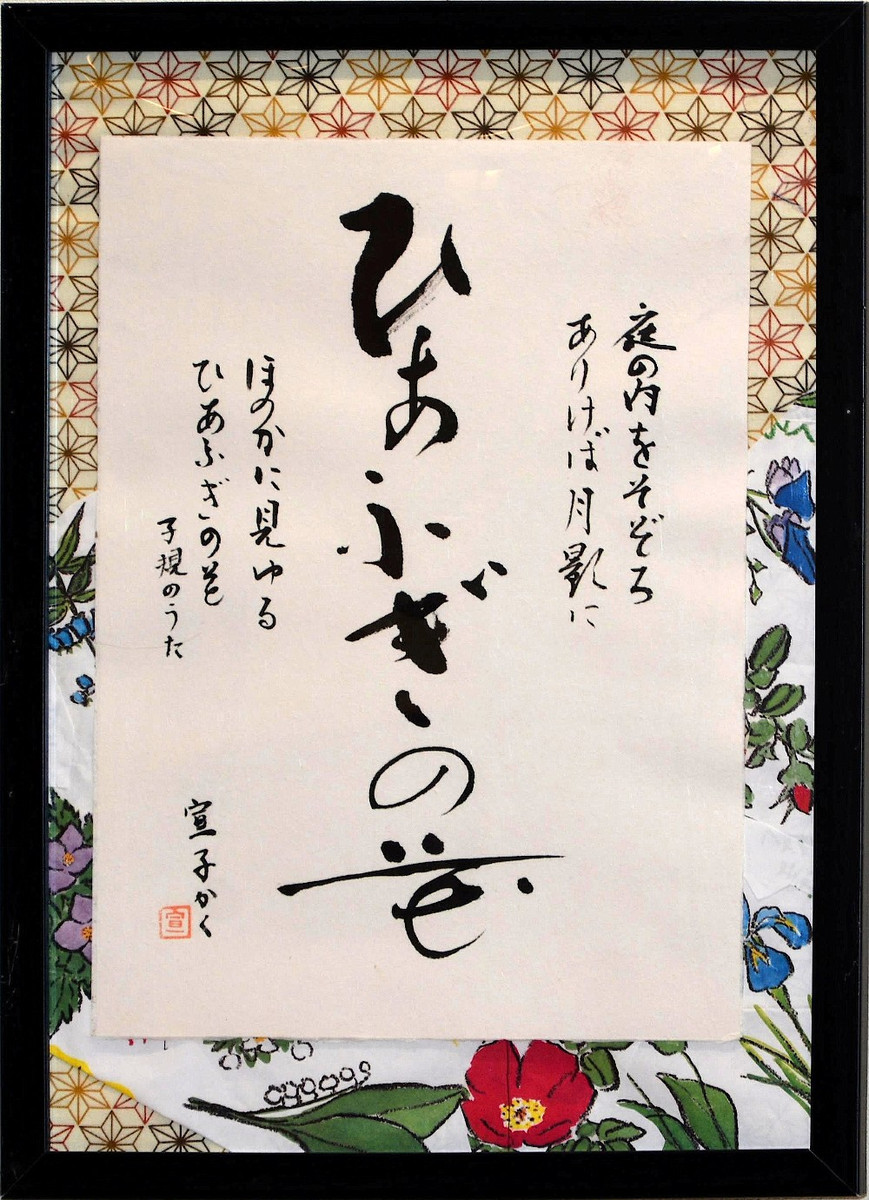 庭の内をそぞろ
ありけば月影に
ひあふぎの花
ほのかに見ゆる
ひあふぎの花
子規のうた
宣子かく
宣